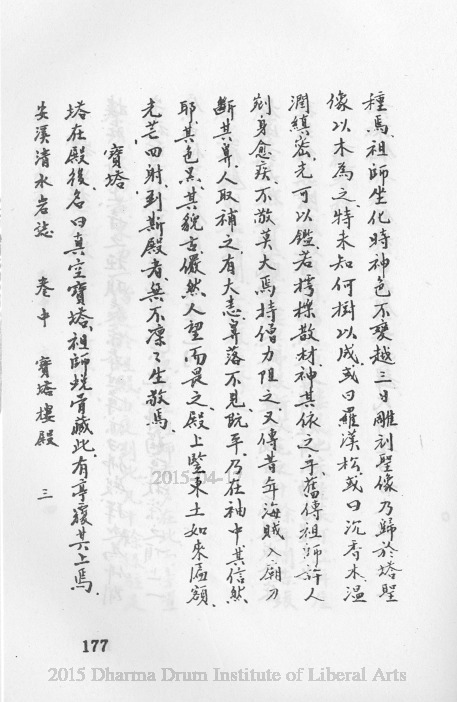 種焉、祖師坐化時神色不變越三日雕刻聖像乃歸於塔聖
像以木為之、特未知何樹以成或曰羅漢松或曰沉香木、溫
潤縝密、光可以鑑若樗櫟散材、神其依之乎、舊傳祖師許人
剜身愈疾、不敬莫大焉持僧力阻之、又傳昔年海賊入廟刀
斷其鼻人取補之、有大志、鼻落不見既乎、乃在袖中其信然
耶、其色黑、其貌古儼然人望而畏之、殿上豎東土如來匾額、
光芒四射、到斯殿者、無不凜々生敬焉、
寶塔
塔在殿後、名曰真空寶塔、祖師蛻骨藏此、有亭覆其上焉、
安溪清水岩誌 卷中 寶塔樓殿 三
177
2015-04-
2015 Dharma Drum Institute of Liberal Arts